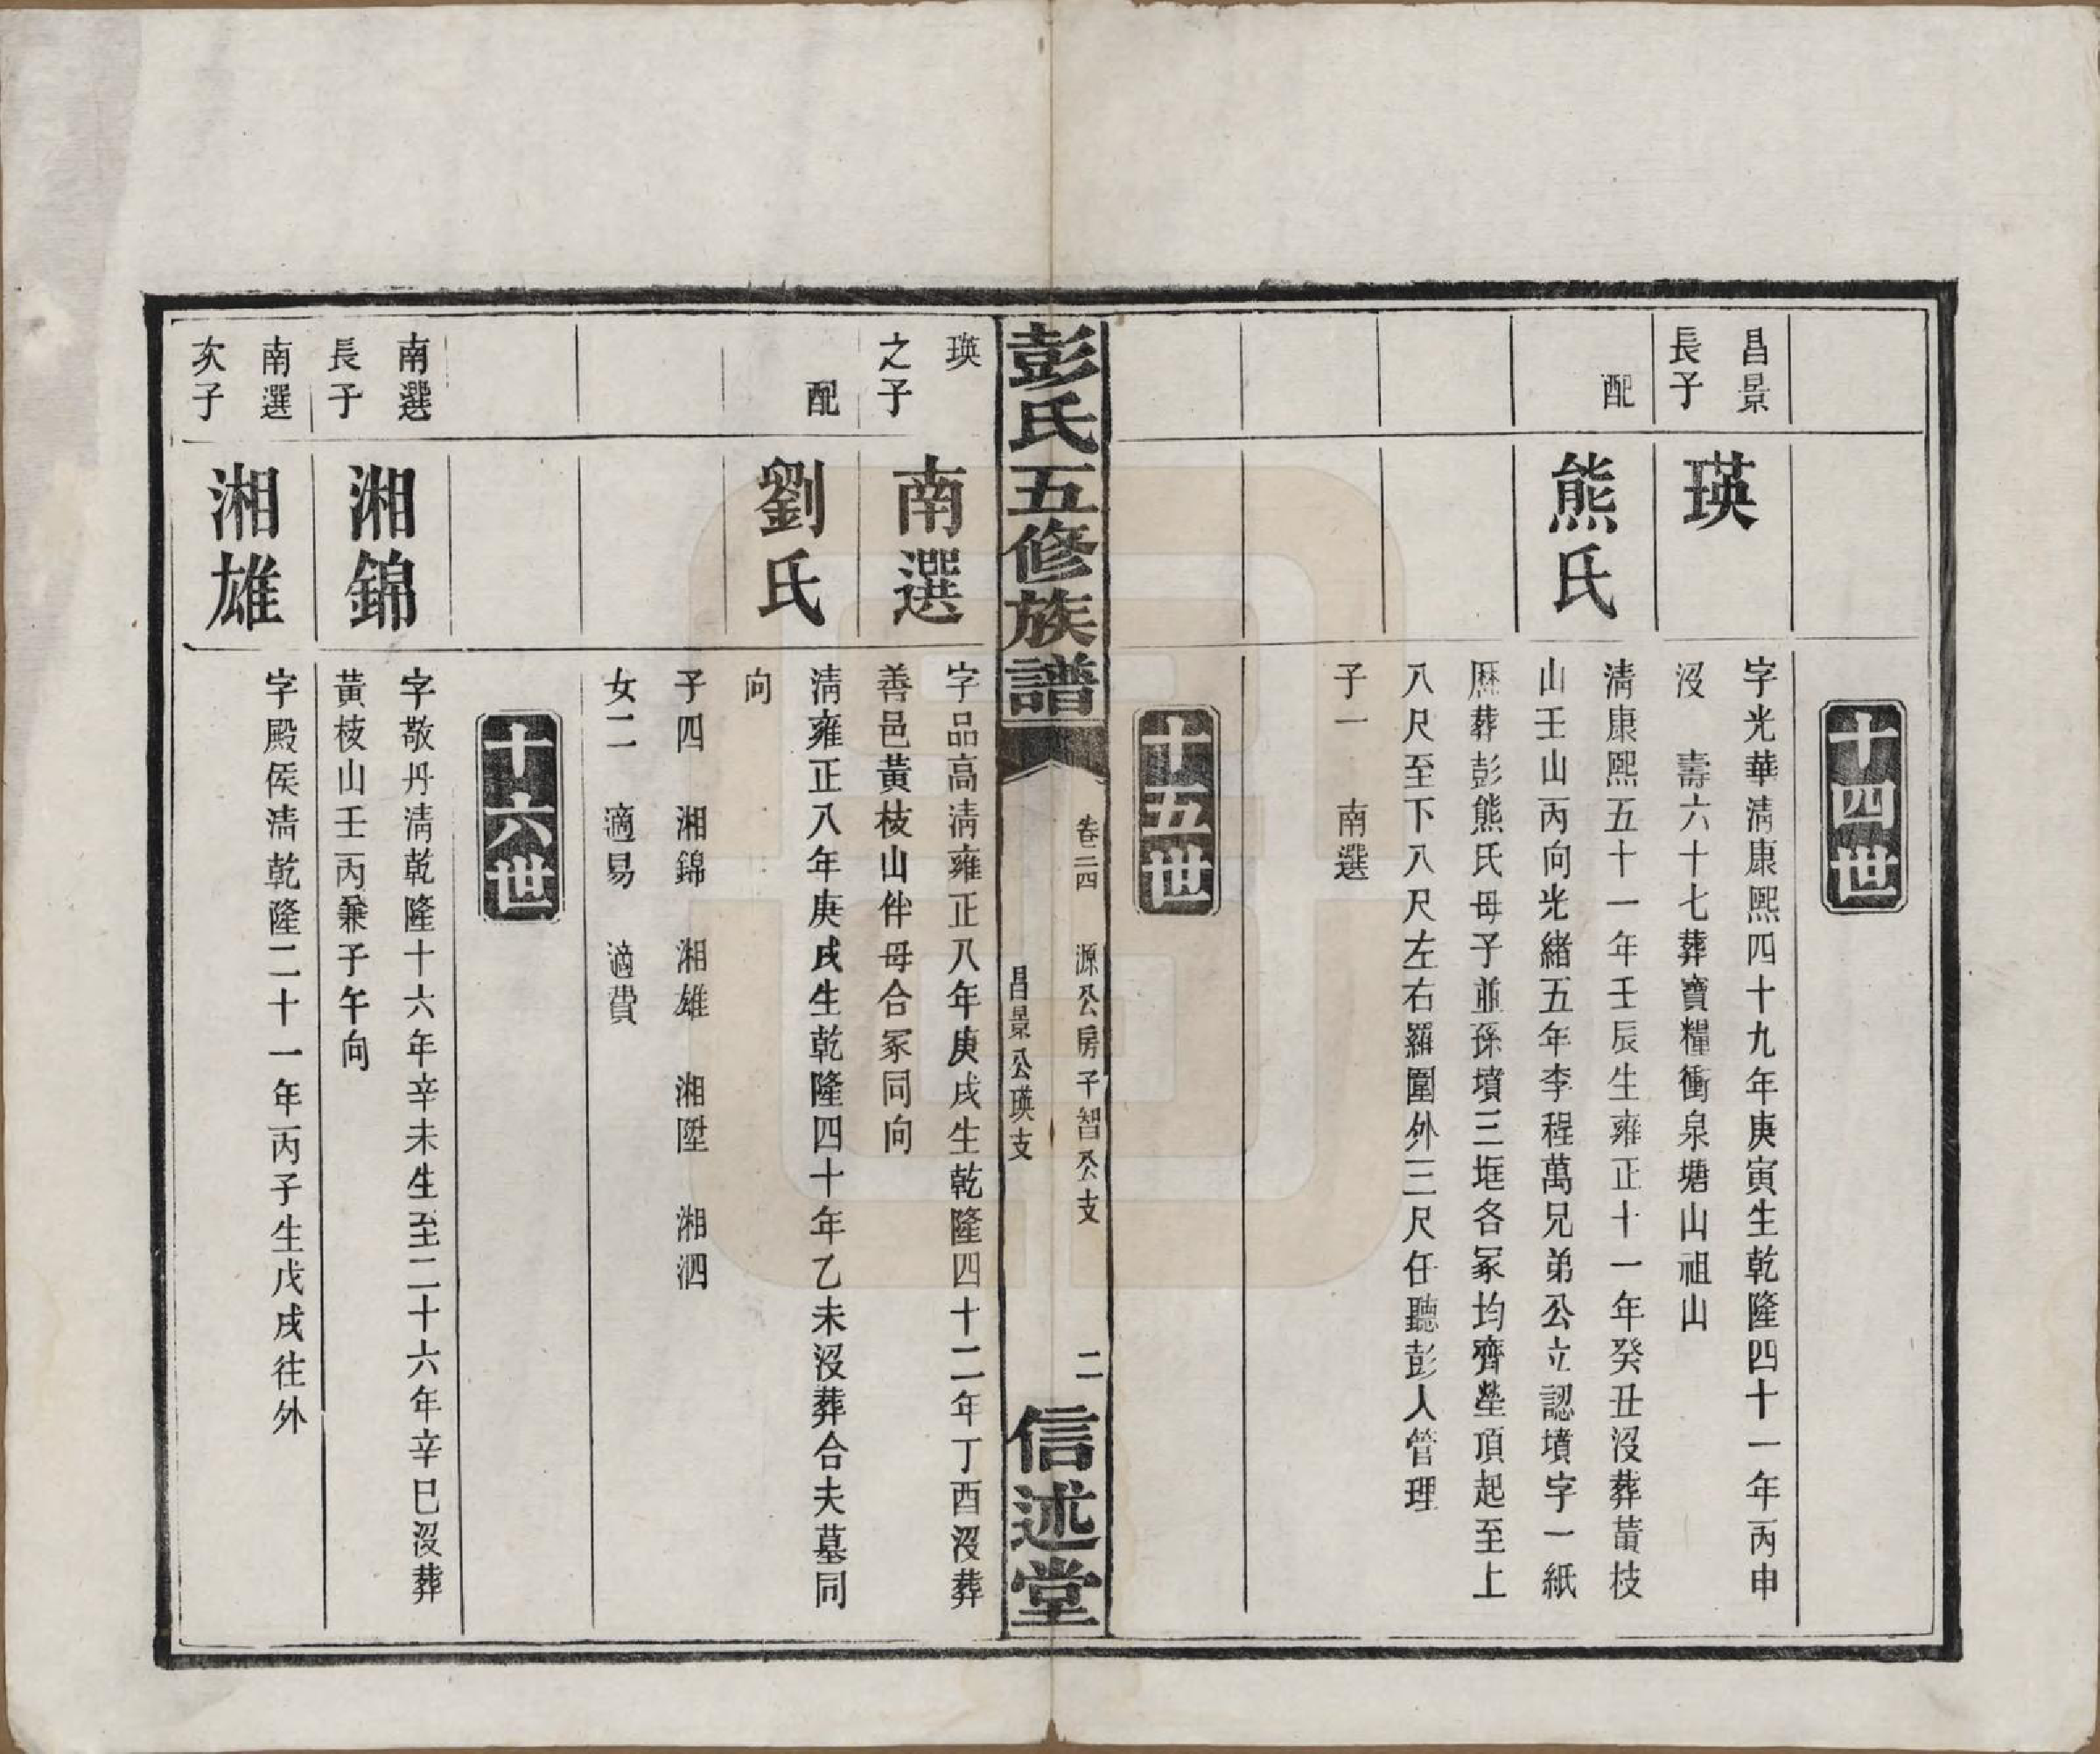 十四世
昌景
長子
瑛
字光華淸康熙四十九年庚寅生乾隆四十一年丙申
沒　壽六十七葬寶糧衝泉塘山祖山
配
熊氏
淸康熙五十一年壬辰生雍正十一年癸丑沒葬黃枝
山壬山丙向光緒五年李程萬兄弟公立認墳字一紙
厯葬彭熊氏母子並孫墳三垇各冢均齊塋頂起至上
八尺至下八尺左右羅圍外三尺任聽彭人管理
子一　南選
十五世
彭氏五修族譜
卷二四　源公房子智公支
昌景公瑛支
二
信述堂
瑛
之子
南選
字品高淸雍正八年庚戌生乾隆四十二年丁酉沒葬
善邑黃枝山伴母合冢同向
配
劉氏
淸雍正八年庚戌生乾隆四十年乙未沒葬合夫墓同
向
子四　湘錦　湘雄　湘陞　湘泗
女二　適易　適費
十六世
南選
長子
湘錦
字敬丹淸乾隆十六年辛未生至二十六年辛巳沒葬
黃枝山壬丙兼子午向
南選
次子
湘雄
字殿侯淸乾隆二十一年丙子生戊戌往外